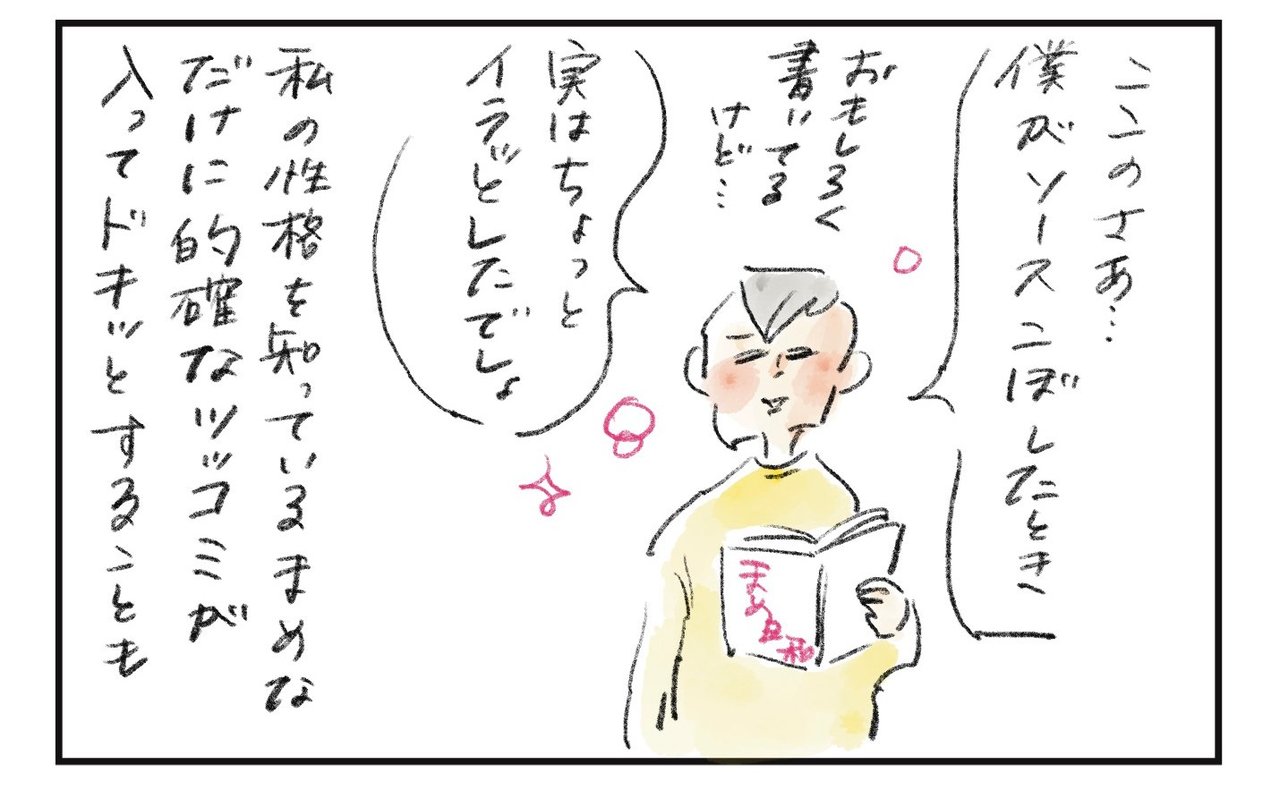 ここのさあ…
僕がソースこぼしたとき
おもしろく
書いてる
けど…
実はちょっと
イラッとしたでしょ
まめ日和
私の性格を知っているまめな
だけに的確なツッコミが
入ってドキッとすることも